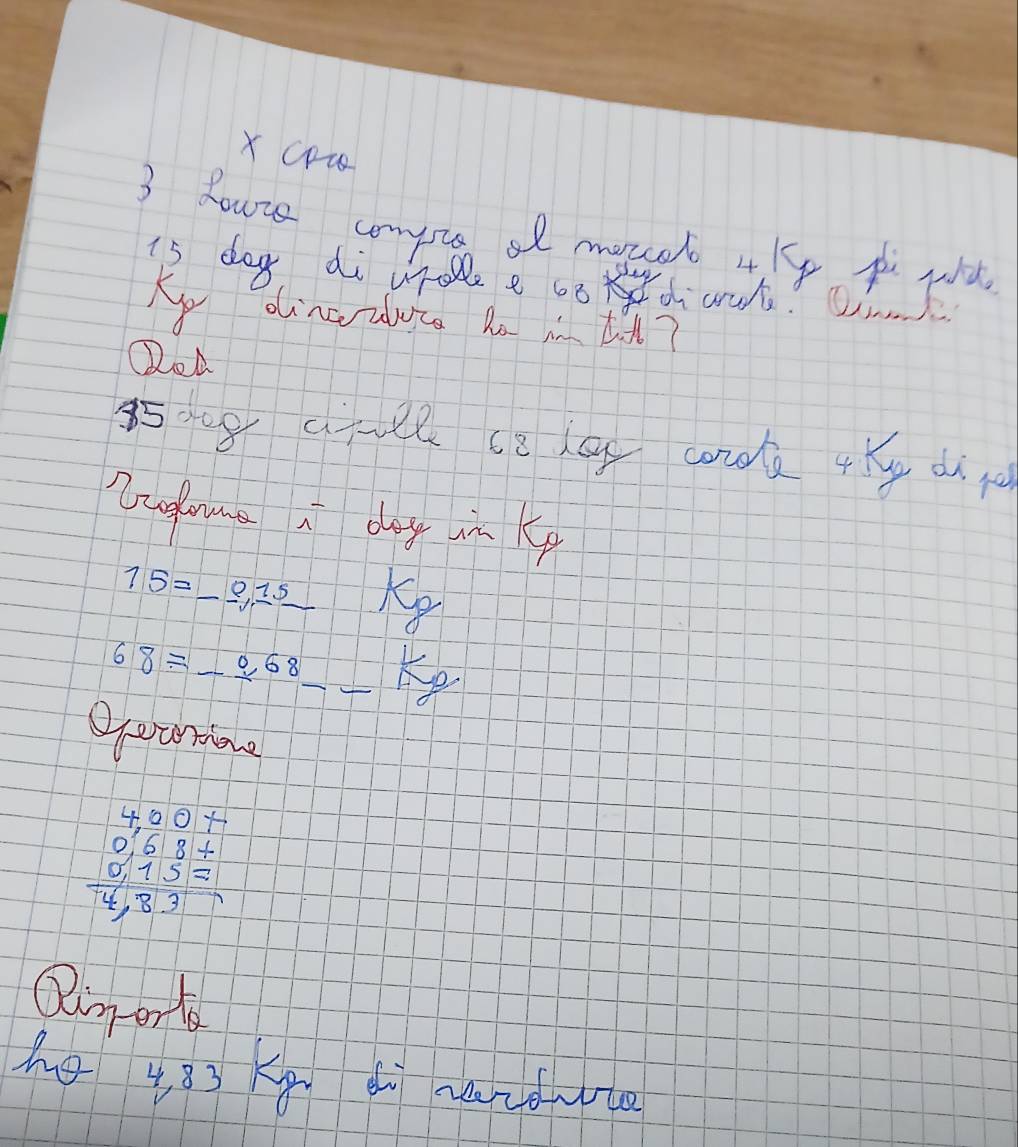 x casa
3 Laura compra al mercato 4 Kg di patate
15 dag di cipolle e 68 dag di carote. Quanti
Kg di verdura ha in tutto?
Dati
15 dag cipolle 68 dag carote 4 Kg di pat
Trasforma i dag in Kg
15 = _ 0,15 _ Kg
68 = _ 0,68 _ _ Kg
Operazione
4,00+
0,68+
0,15=
4,83
Risposta
ha 4,83 Kg di verdura